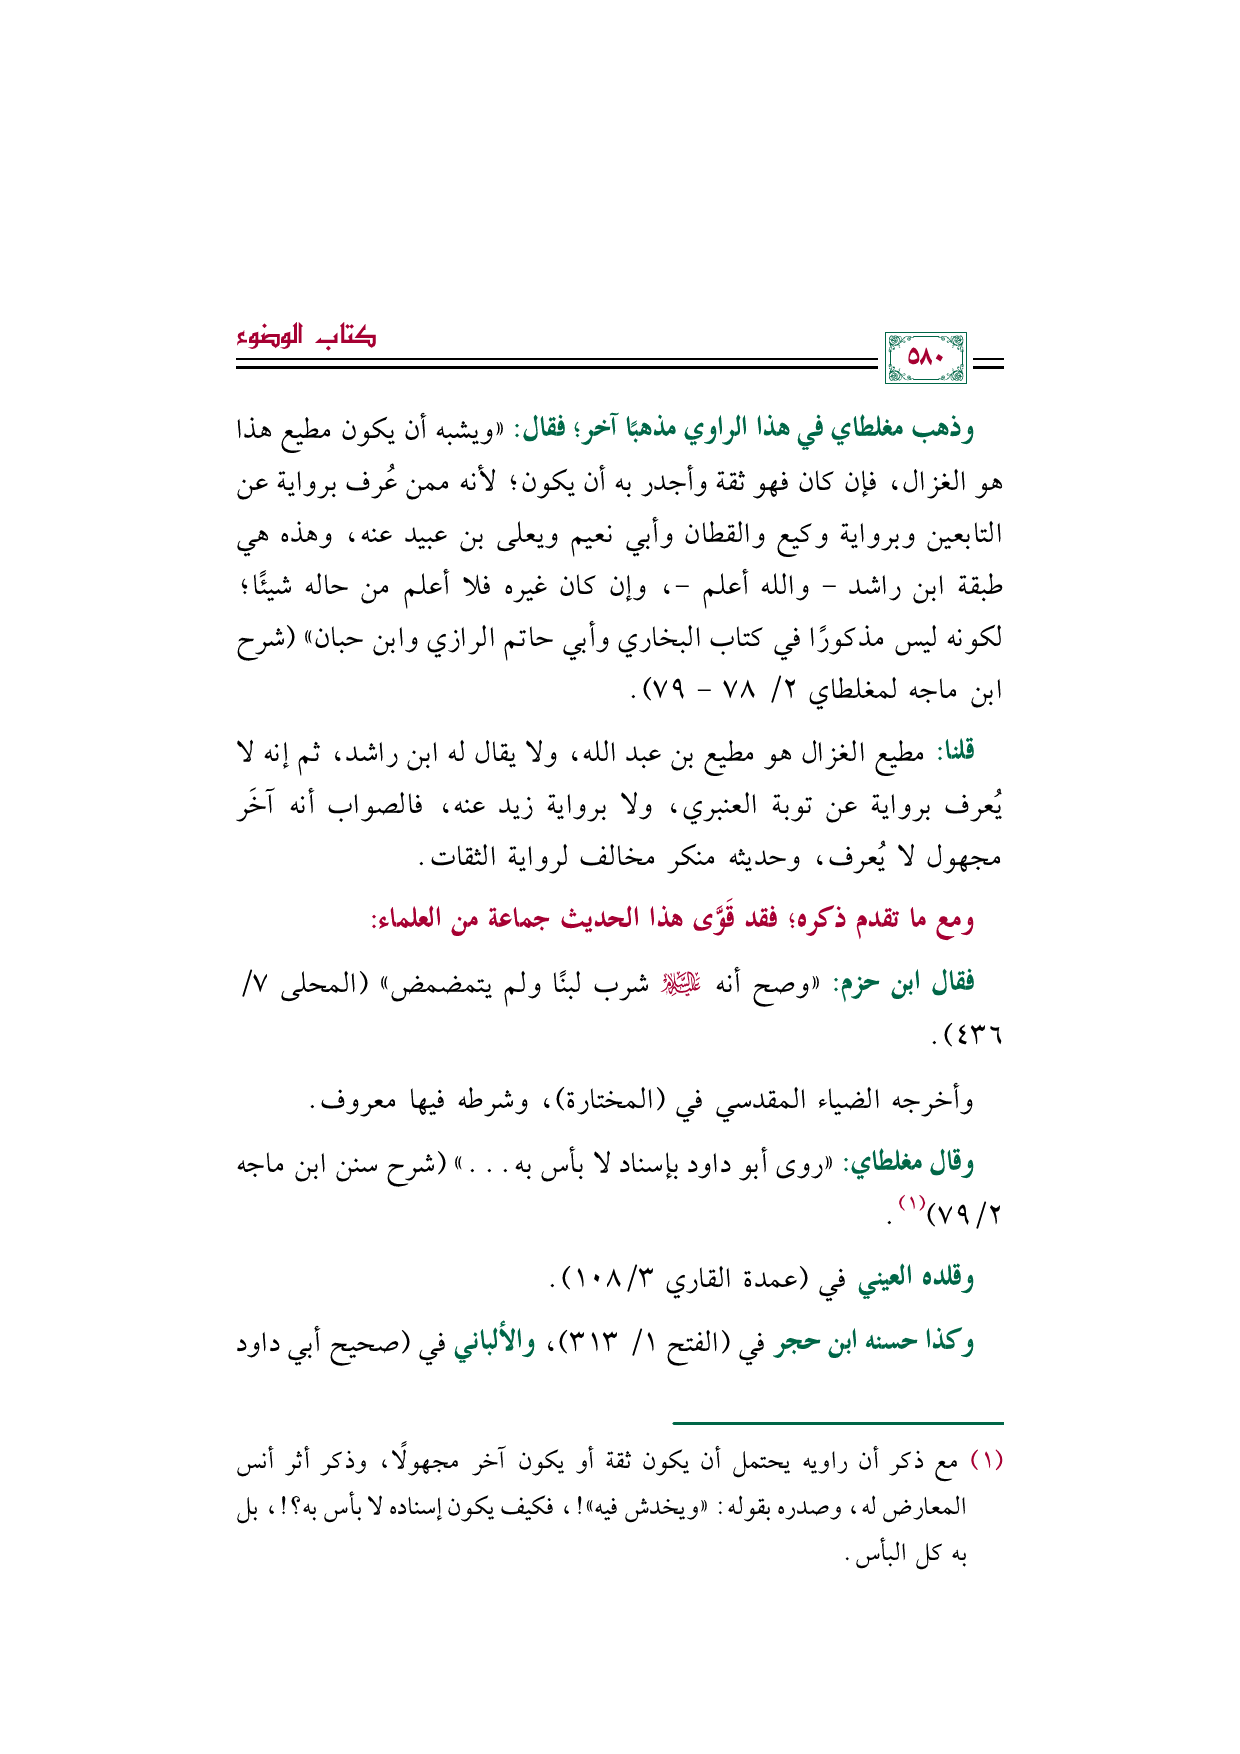 كتاب الوضوء
٥٨٠
وذهب مغلطاي في هذا الراوي مذهبًا آخر؛ فقال: «ويشبه أن يكون مطيع هذا
هو الغزال، فإن كان فهو ثقة وأجدر به أن يكون؛ لأنه ممن عُرف برواية عن
التابعين وبرواية وكيع والقطان وأبي نعيم ويعلى بن عبيد عنه، وهذه هي
طبقة ابن راشد – والله أعلم –، وإن كان غيره فلا أعلم من حاله شيئًا؛
لكونه ليس مذكورًا في كتاب البخاري وأبي حاتم الرازي وابن حبان» (شرح
ابن ماجه لمغلطاي ٢/ ٧٨ – ٧٩).
قلنا: مطيع الغزال هو مطيع بن عبد الله، ولا يقال له ابن راشد، ثم إنه لا
يُعرف برواية عن توبة العنبري، ولا برواية زيد عنه، فالصواب أنه آخَر
مجهول لا يُعرف، وحديثه منكر مخالف لرواية الثقات.
ومع ما تقدم ذكره؛ فقد قَوَّى هذا الحديث جماعة من العلماء:
فقال ابن حزم: «وصح أنه عليه السلام شرب لبنًا ولم يتمضمض» (المحلى ٧/
٤٣٦).
وأخرجه الضياء المقدسي في (المختارة)، وشرطه فيها معروف.
وقال مغلطاي: «روى أبو داود بإسناد لا بأس به...» (شرح سنن ابن ماجه
٢/ ٧٩)(١).
وقلده العيني في (عمدة القاري ٣/ ١٠٨).
وكذا حسنه ابن حجر في (الفتح ١/ ٣١٣)، والألباني في (صحيح أبي داود
(١) مع ذكر أن راويه يحتمل أن يكون ثقة أو يكون آخر مجهولًا، وذكر أثر أنس
المعارض له، وصدره بقوله: «ويخدش فيه»!، فكيف يكون إسناده لا بأس به؟!، بل
به كل البأس.